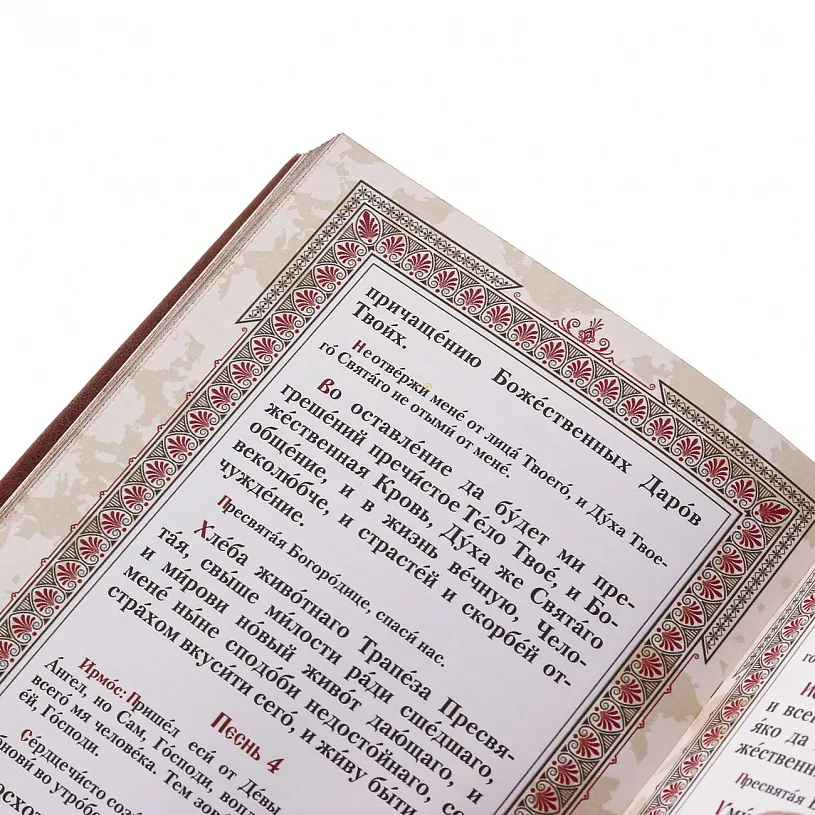 причаще́нию Боже́ственных Даро́в
Твои́х.
Не отве́ржи мене́ от лица́ Твоего́, и Ду́ха Твое-
го́ Свята́го не отыми́ от мене́.
Во оставле́ние да бу́дет ми пре-
греше́ний пречи́стое Те́ло Твое́, и Бо-
же́ственная Кровь, Ду́ха же Свята́го
обще́ние, и в жизнь ве́чную, Чело-
веколю́бче, и страсте́й и скорбе́й от-
чужде́ние.
Пресвята́я Богоро́дице, спаси́ нас.
Хле́ба живо́тнаго Трапе́за Пресвя-
та́я, свы́ше ми́лости ра́ди сше́дшаго,
и ми́рови но́вый живо́т даю́щаго, и
мене́ ны́не сподо́би недосто́йнаго, со
стра́хом вкуси́ти сего́, и жи́ву бы́ти
Песнь 4
Ирмо́с: Прише́л еси́ от Де́вы
А́нгел, но Сам, Го́споди, вопл
всего́ мя челове́ка. Тем зов
ей, Го́споди.
и все
я́ко да
же́ственн
Пресвята́я